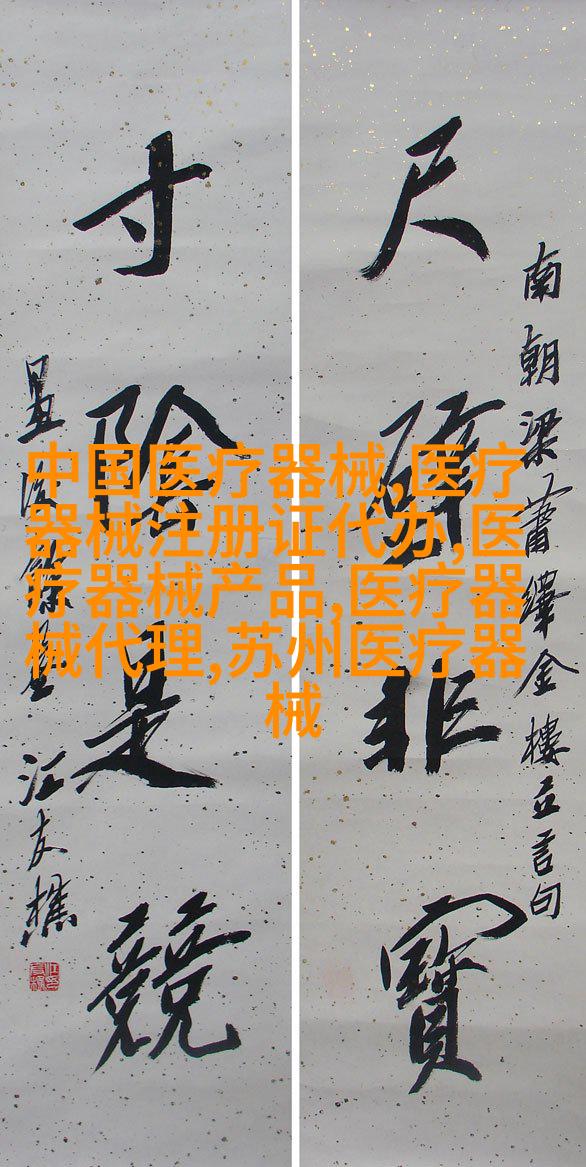 南朝梁蕭繹金樓立言句
尺璧非寶
寸陰是競
江友樵
中国医疗器械,医疗
器械注册证代办,医
疗器械产品,医疗器
械代理,苏州医疗器
械